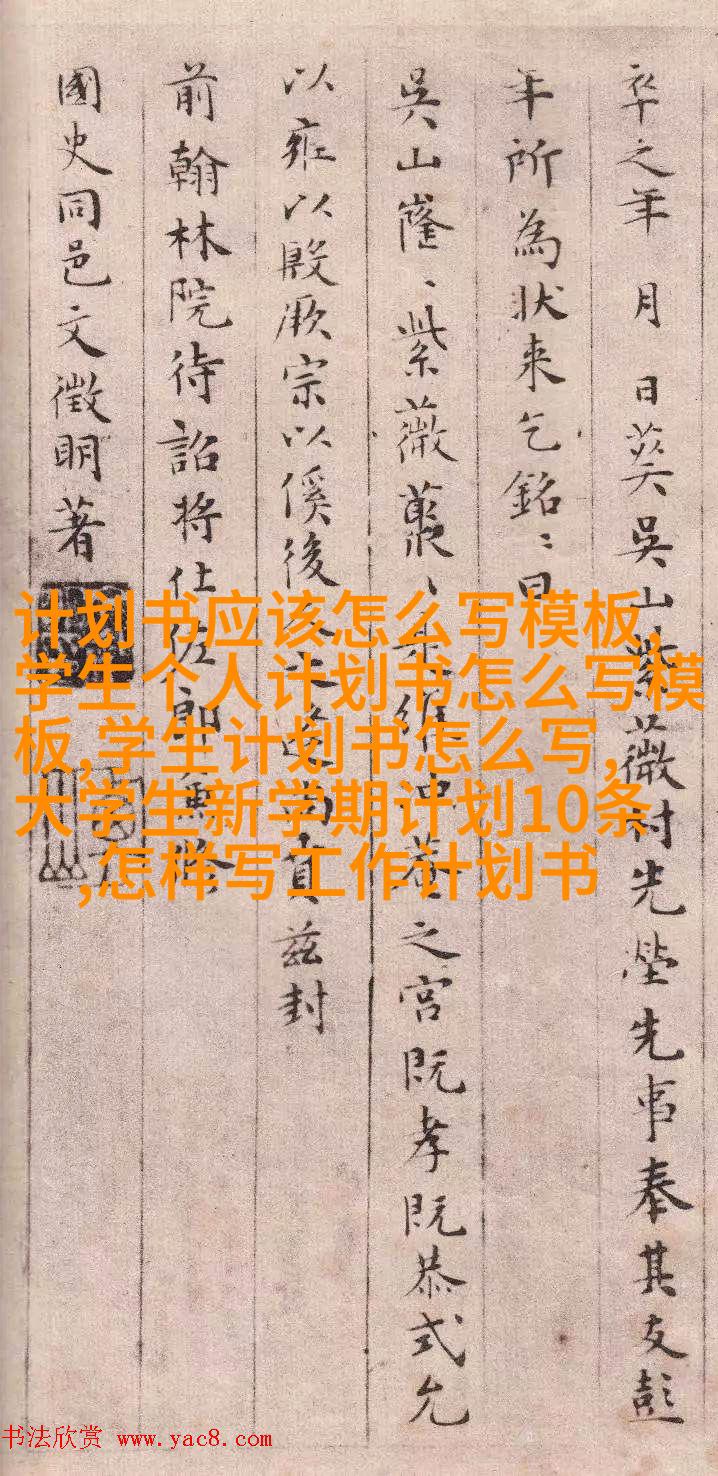 卒之年 月 日葬吳山紫薇村先塋先事奉其友彭
年所為狀來乞銘〻曰
吳山窿〻紫薇叢〻
之宮既孝既恭式允
以雍以殷厥宗以徯後
兹封
前翰林院待詔將仕佐郎兼修
國史同邑文徵明著
计划书应该怎么写模板,
学生个人计划书怎么写模
板,学生计划书怎么写,
大学生新学期计划10条
,怎样写工作计划书
书法欣赏 www.yac8.com